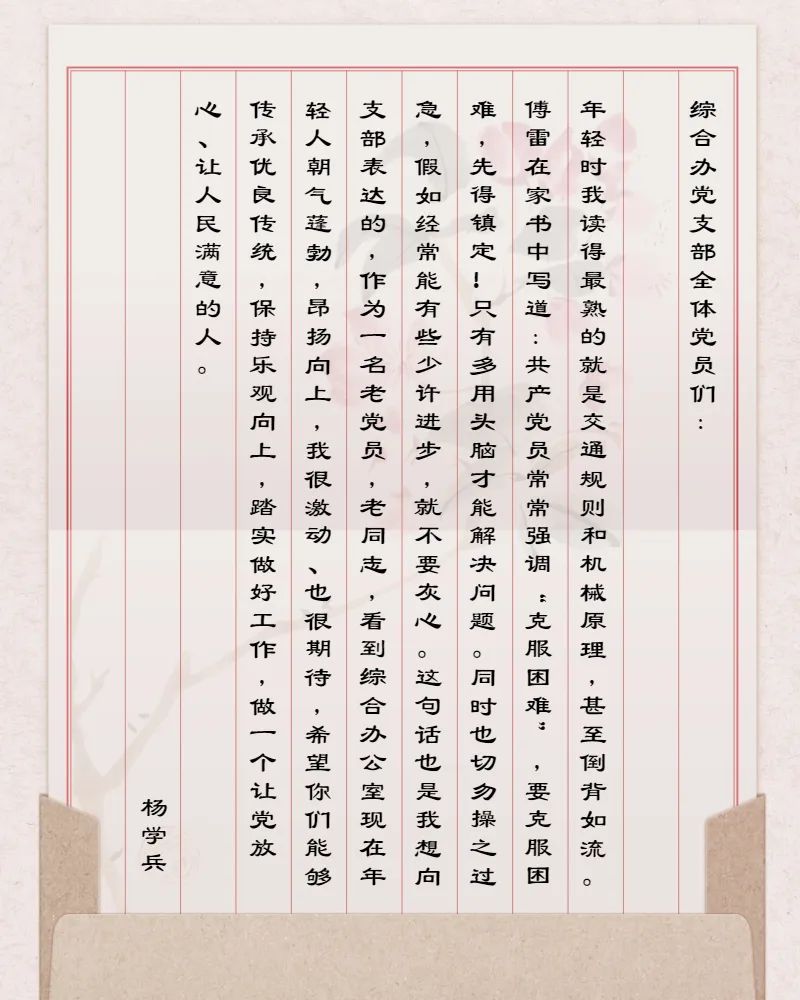 综合办党支部全体党员们：
年轻时我读得最熟的就是交通规则和机械原理，甚至倒背如流。
傅雷在家书中写道：共产党员常常强调“克服困难”，要克服困
难，先得镇定！只有多用头脑才能解决问题。同时也切勿操之过
急，假如经常能有些少许进步，就不要灰心。这句话也是我想向
支部表达的，作为一名老党员，老同志，看到综合办公室现在年
轻人朝气蓬勃，昂扬向上，我很激动、也很期待，希望你们能够
传承优良传统，保持乐观向上，踏实做好工作，做一个让党放
心、让人民满意的人。
杨学兵